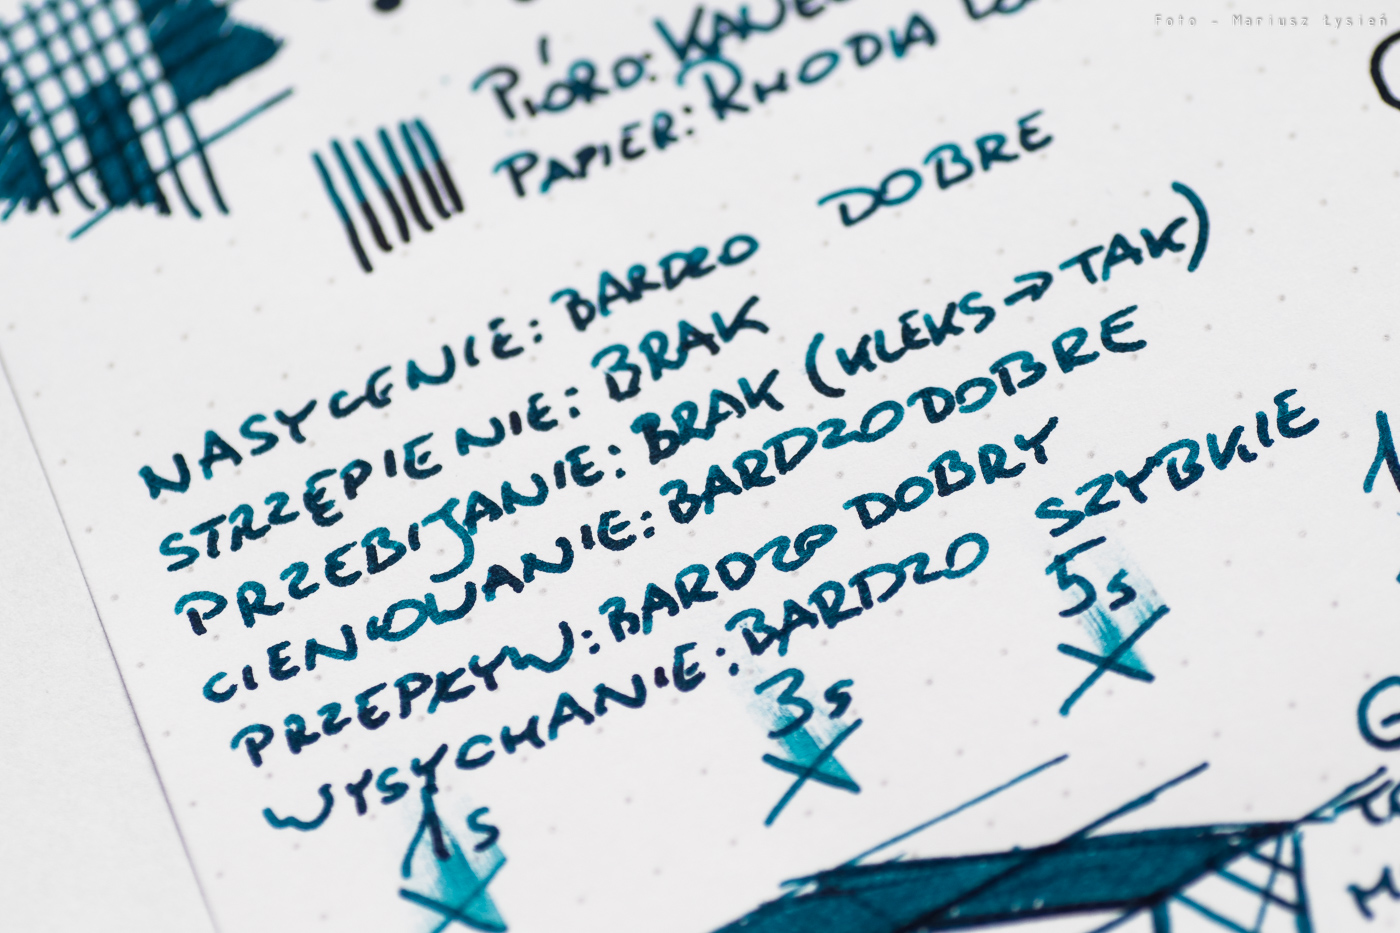 Foto - Mariusz Łysień
Pióro:
Papier: Rhodia
NASYCENIE: BARDZO DOBRE
STRZĘPIENIE: BRAK
PRZEBIJANIE: BRAK (KLEKS → TAK)
CIENIOWANIE: BARDZO DOBRE
PRZEPŁYW: BARDZO DOBRY
WYSYCHANIE: BARDZO SZYBKIE
1s 3s 5s